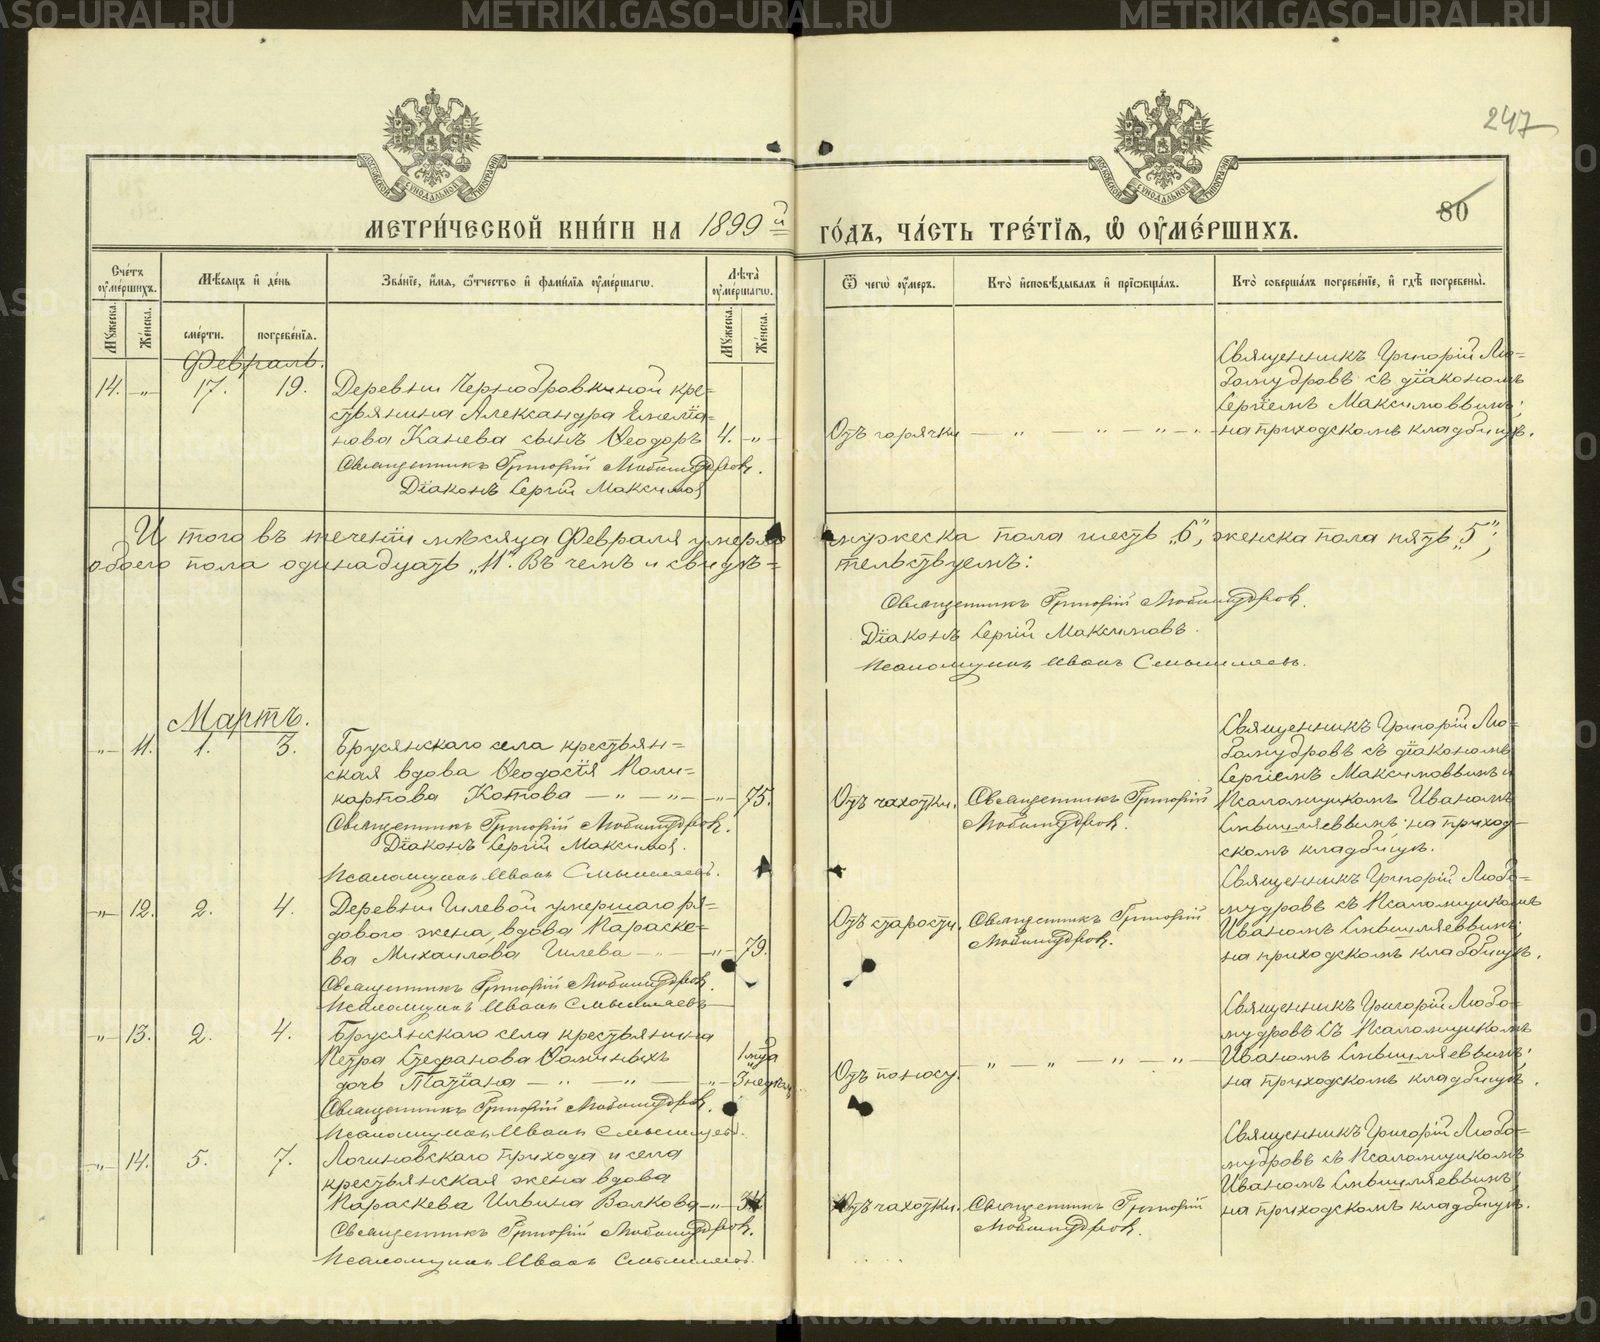 247
80
МЕТРИ́ЧЕСКОЙ КНИ́ГИ НА 1899 й
ГО́ДЪ, ЧА́СТЬ ТРЕ́ТІѦ, Ѽ ОУМЕ́РШИХЪ.
Сче́тъ оуме́ршихъ.
Мѣ́сяцъ и де́нь
Зва́ніе, и́мя, ѻ́тчество и фами́лія оуме́ршагѡ.
Лѣ́та оуме́ршагѡ.
Ѿ чегѡ̀ оу́меръ.
Кто̀ и́сповѣдывалъ и прїѡбща́лъ.
Кто̀ соверша́лъ погребе́ніе, и гдѣ̀ погребены̀.
Му́жеска.
Же́нска.
сме́рти.
погребе́нія.
Му́жеска.
Же́нска.
Февраль.
14. -„- 17. 19.
Деревни Чернобровкиной кре-
стьянина Александра Емелїа-
нова Канева сынъ Ѳеодоръ 4. -„-
Священникъ Григорій Любомудровъ.
Дїаконъ Сергій Максимов
Отъ горячки — „ — „ — „ -
Священникъ Григорій Лю-
бомудровъ съ дїакономъ
Сергїемъ Максимовымъ;
на приходскомъ кладбищѣ.
И того въ теченїи мѣсяца Февраля умерло
обоего пола одинадцать „11". Въ чемъ и свидѣ-
мужеска пола шесть „6", женска пола пять „5";
тельствуемъ:
Священникъ Григорій Любомудровъ.
Дїаконъ Сергій Максимовъ.
Псаломщикъ Иванъ Смышляевъ.
Мартъ.
-„- 11. 1. 3.
Брусянскаго села крестьян-
ская вдова Ѳеодосїя Поли-
карпова Котова — „ — „ — -„- 75.
Священникъ Григорій Любомудровъ.
Дїаконъ Сергій Максимов.
Псаломщикъ Иванъ Смышляевъ.
Отъ чахотки.
Священникъ Григорій
Любомудровъ.
Священникъ Григорій Лю-
бомудровъ съ дїакономъ
Сергїемъ Максимовымъ и
Псаломщикомъ Иваномъ
Смышляевымъ: на приход-
скомъ кладбищѣ.
-„- 12. 2. 4.
Деревни Гилевой умершаго ря-
дового жена, вдова Параске-
ва Михаилова Гилева — -„- 79.
Священникъ Григорій Любомудровъ.
Псаломщикъ Иванъ Смышляевъ
Отъ старости.
Священникъ Григорій
Любомудровъ.
Священникъ Григорій Любо-
мудровъ съ Псаломщикомъ
Иваномъ Смышляевымъ;
на приходскомъ кладбищѣ.
-„- 13. 2. 4.
Брусянскаго села крестьянина
Петра Стефанова Ѳоминыхъ
дочь Татїана — „ — „ — -„-
1 мца
3 недѣли
Священникъ Григорій Любомудровъ.
Псаломщикъ Иванъ Смышляевъ.
Отъ поносу. — „ — „ — „ — „ —
Священникъ Григорій Любо-
мудровъ съ Псаломщикомъ
Иваномъ Смышляевымъ;
на приходскомъ кладбищѣ.
-„- 14. 5. 7.
Логиновскаго прихода и села
крестьянская жена вдова
Параскева Ильина Волкова -„- 34
Священникъ Григорій Любомудровъ.
Псаломщикъ Иванъ Смышляевъ.
Отъ чахотки.
Священникъ Григорій
Любомудровъ.
Священникъ Григорій Любо-
мудровъ съ Псаломщикомъ
Иваномъ Смышляевымъ;
на приходскомъ кладбищѣ.
METRIKI.GASO-URAL.RU